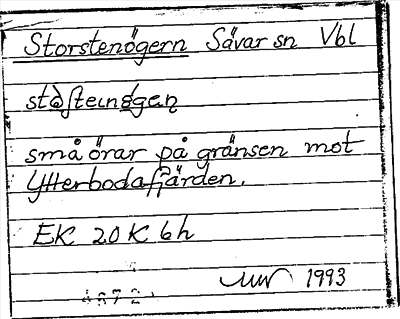 Storstenögern Sävar sn Vbl
små örar på gränsen mot
Ytterbodafjärden.
EK 20 K 6h
1993